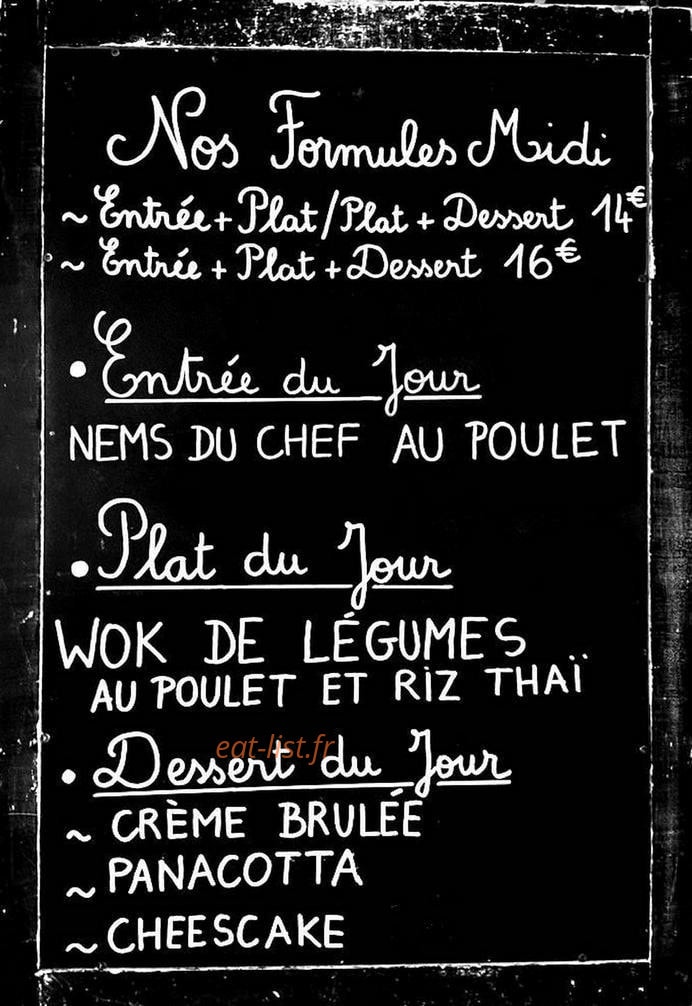 Nos Formules Midi
~ Entrée + Plat / Plat + Dessert 14€
~ Entrée + Plat + Dessert 16€
• Entrée du Jour
NEMS DU CHEF AU POULET
• Plat du Jour
WOK DE LÉGUMES
AU POULET ET RIZ THAÏ
eat-list.fr
• Dessert du Jour
~ CRÈME BRULÉE
~ PANACOTTA
~ CHEESCAKE